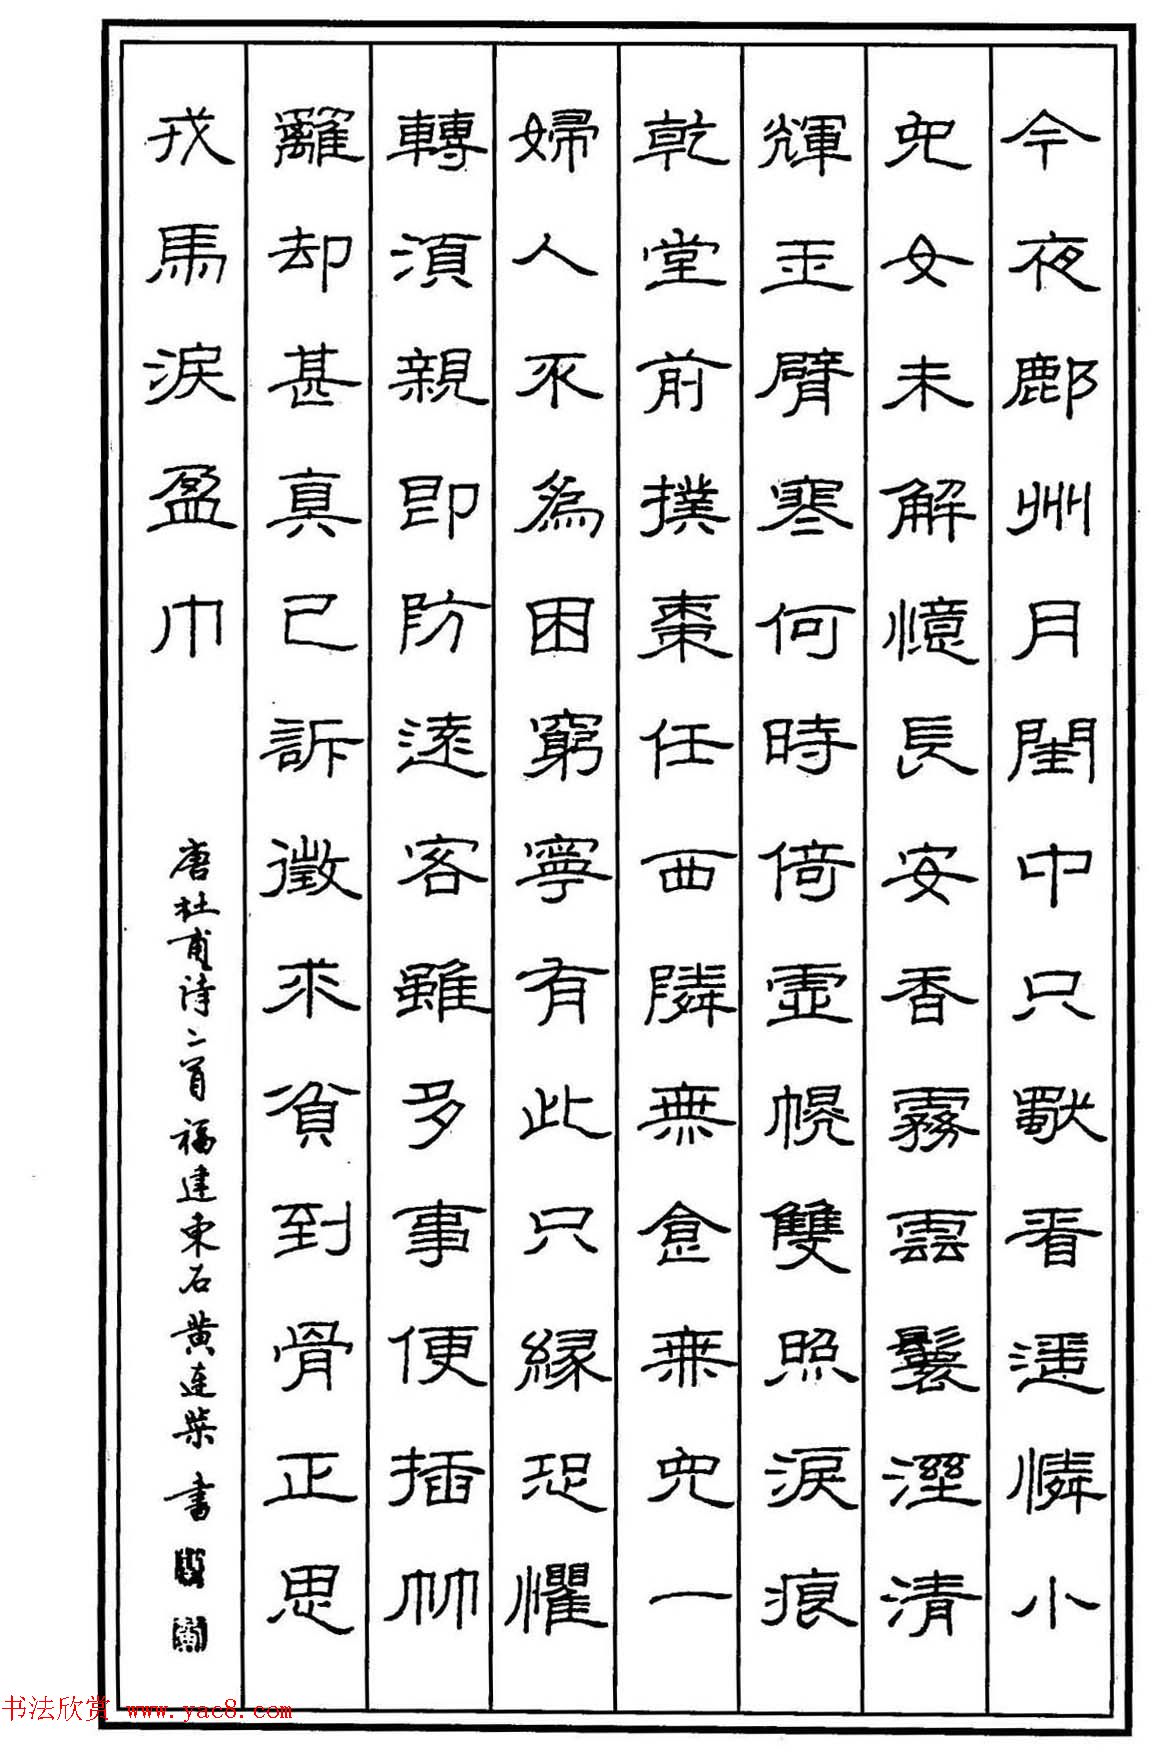 今夜鄜州月閨中只獨看遥憐小
兒女未解憶長安香霧雲鬟溼清
輝玉臂寒何時倚虛幌雙照淚痕
乾堂前撲棗任西隣無食無兒一
婦人不為困窮寧有此只緣恐懼
轉須親即防遠客雖多事便插竹
籬却甚真已訴徵求貧到骨正思
戎馬淚盈巾
唐杜甫诗二首福建東石黄连榮書
书法欣赏 www.yac8.com